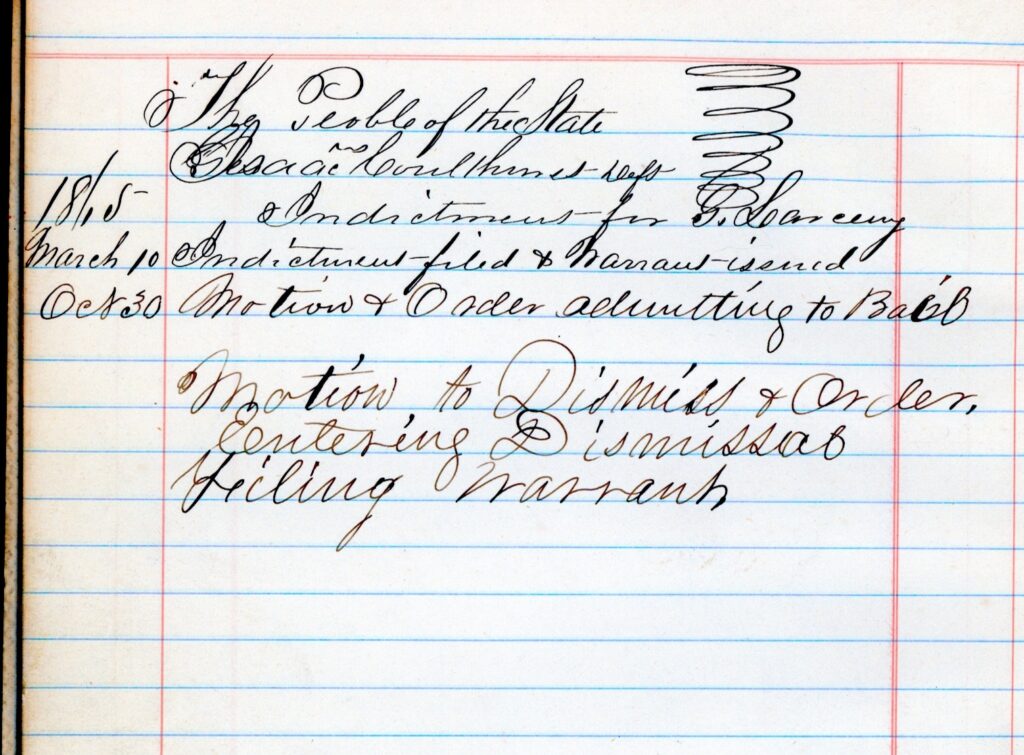 The People of the State
vs Isaac Coulthurst Deft
1865
Indictment for G. Larceny
March 10 Indictment filed & Warrant issued
Oct 30 Motion & Order admitting to Bail
Motion to Dismiss & Order,
Entering Dismissal
Filing Warrant